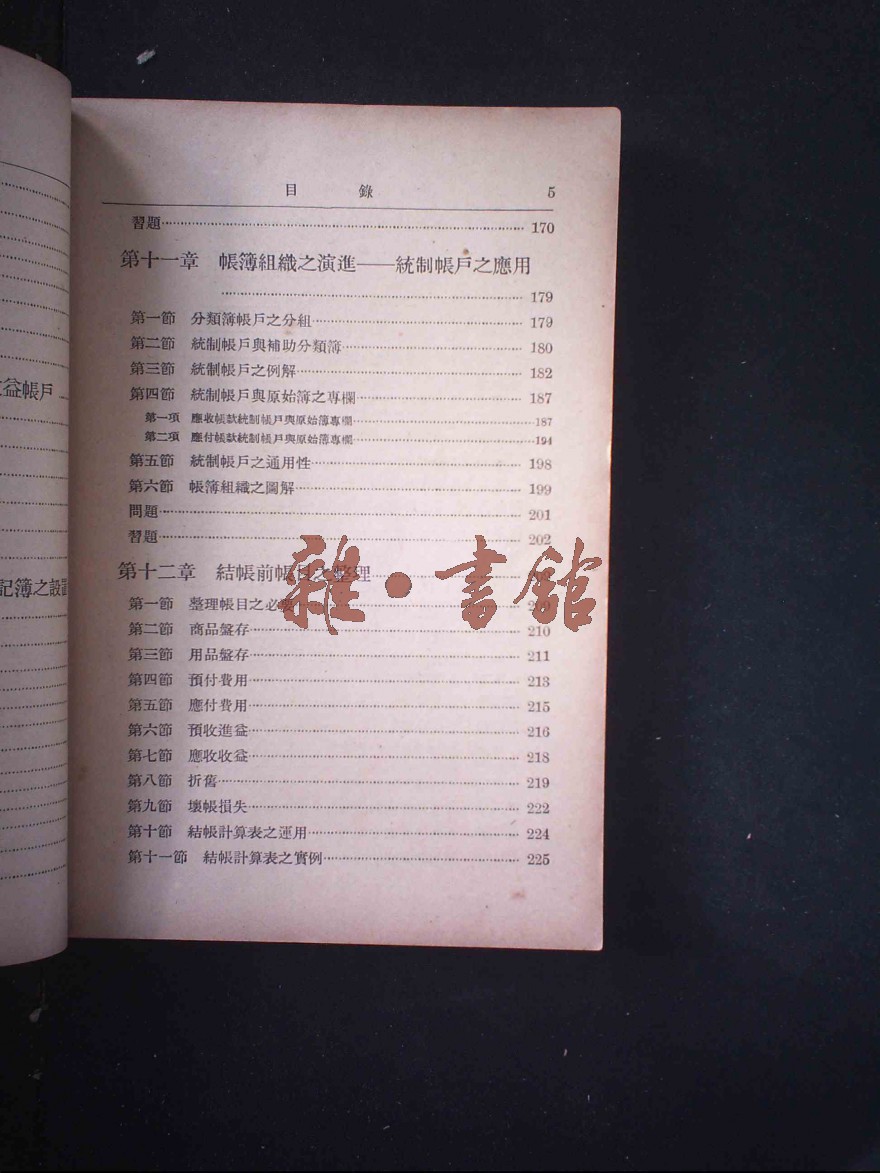 益帳戶
記簿之設置
目 錄 5
習題 170
第十一章 帳簿組織之演進——統制帳戶之應用
179
第一節 分類簿帳戶之分組 179
第二節 統制帳戶與補助分類簿 180
第三節 統制帳戶之例解 182
第四節 統制帳戶與原始簿之專欄 187
第一項 應收帳款統制帳戶與原始簿專欄 187
第二項 應付帳款統制帳戶與原始簿專欄 194
第五節 統制帳戶之通用性 198
第六節 帳簿組織之圖解 199
問題 201
習題 202
第十二章 結帳前帳目之整理
第一節 整理帳目之必要 209
第二節 商品盤存 210
第三節 用品盤存 211
第四節 預付費用 213
第五節 應付費用 215
第六節 預收進益 216
第七節 應收收益 218
第八節 折舊 219
第九節 壞帳損失 222
第十節 結帳計算表之運用 224
第十一節 結帳計算表之實例 225
雜·書館